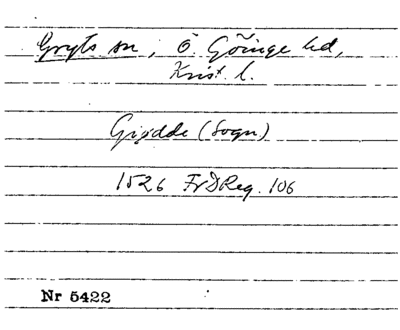 Gryts sn, Ö. Göinge hd,
Krist. l.
Giødde (Sogn)
1526 FrDReg. 106
Nr 5422